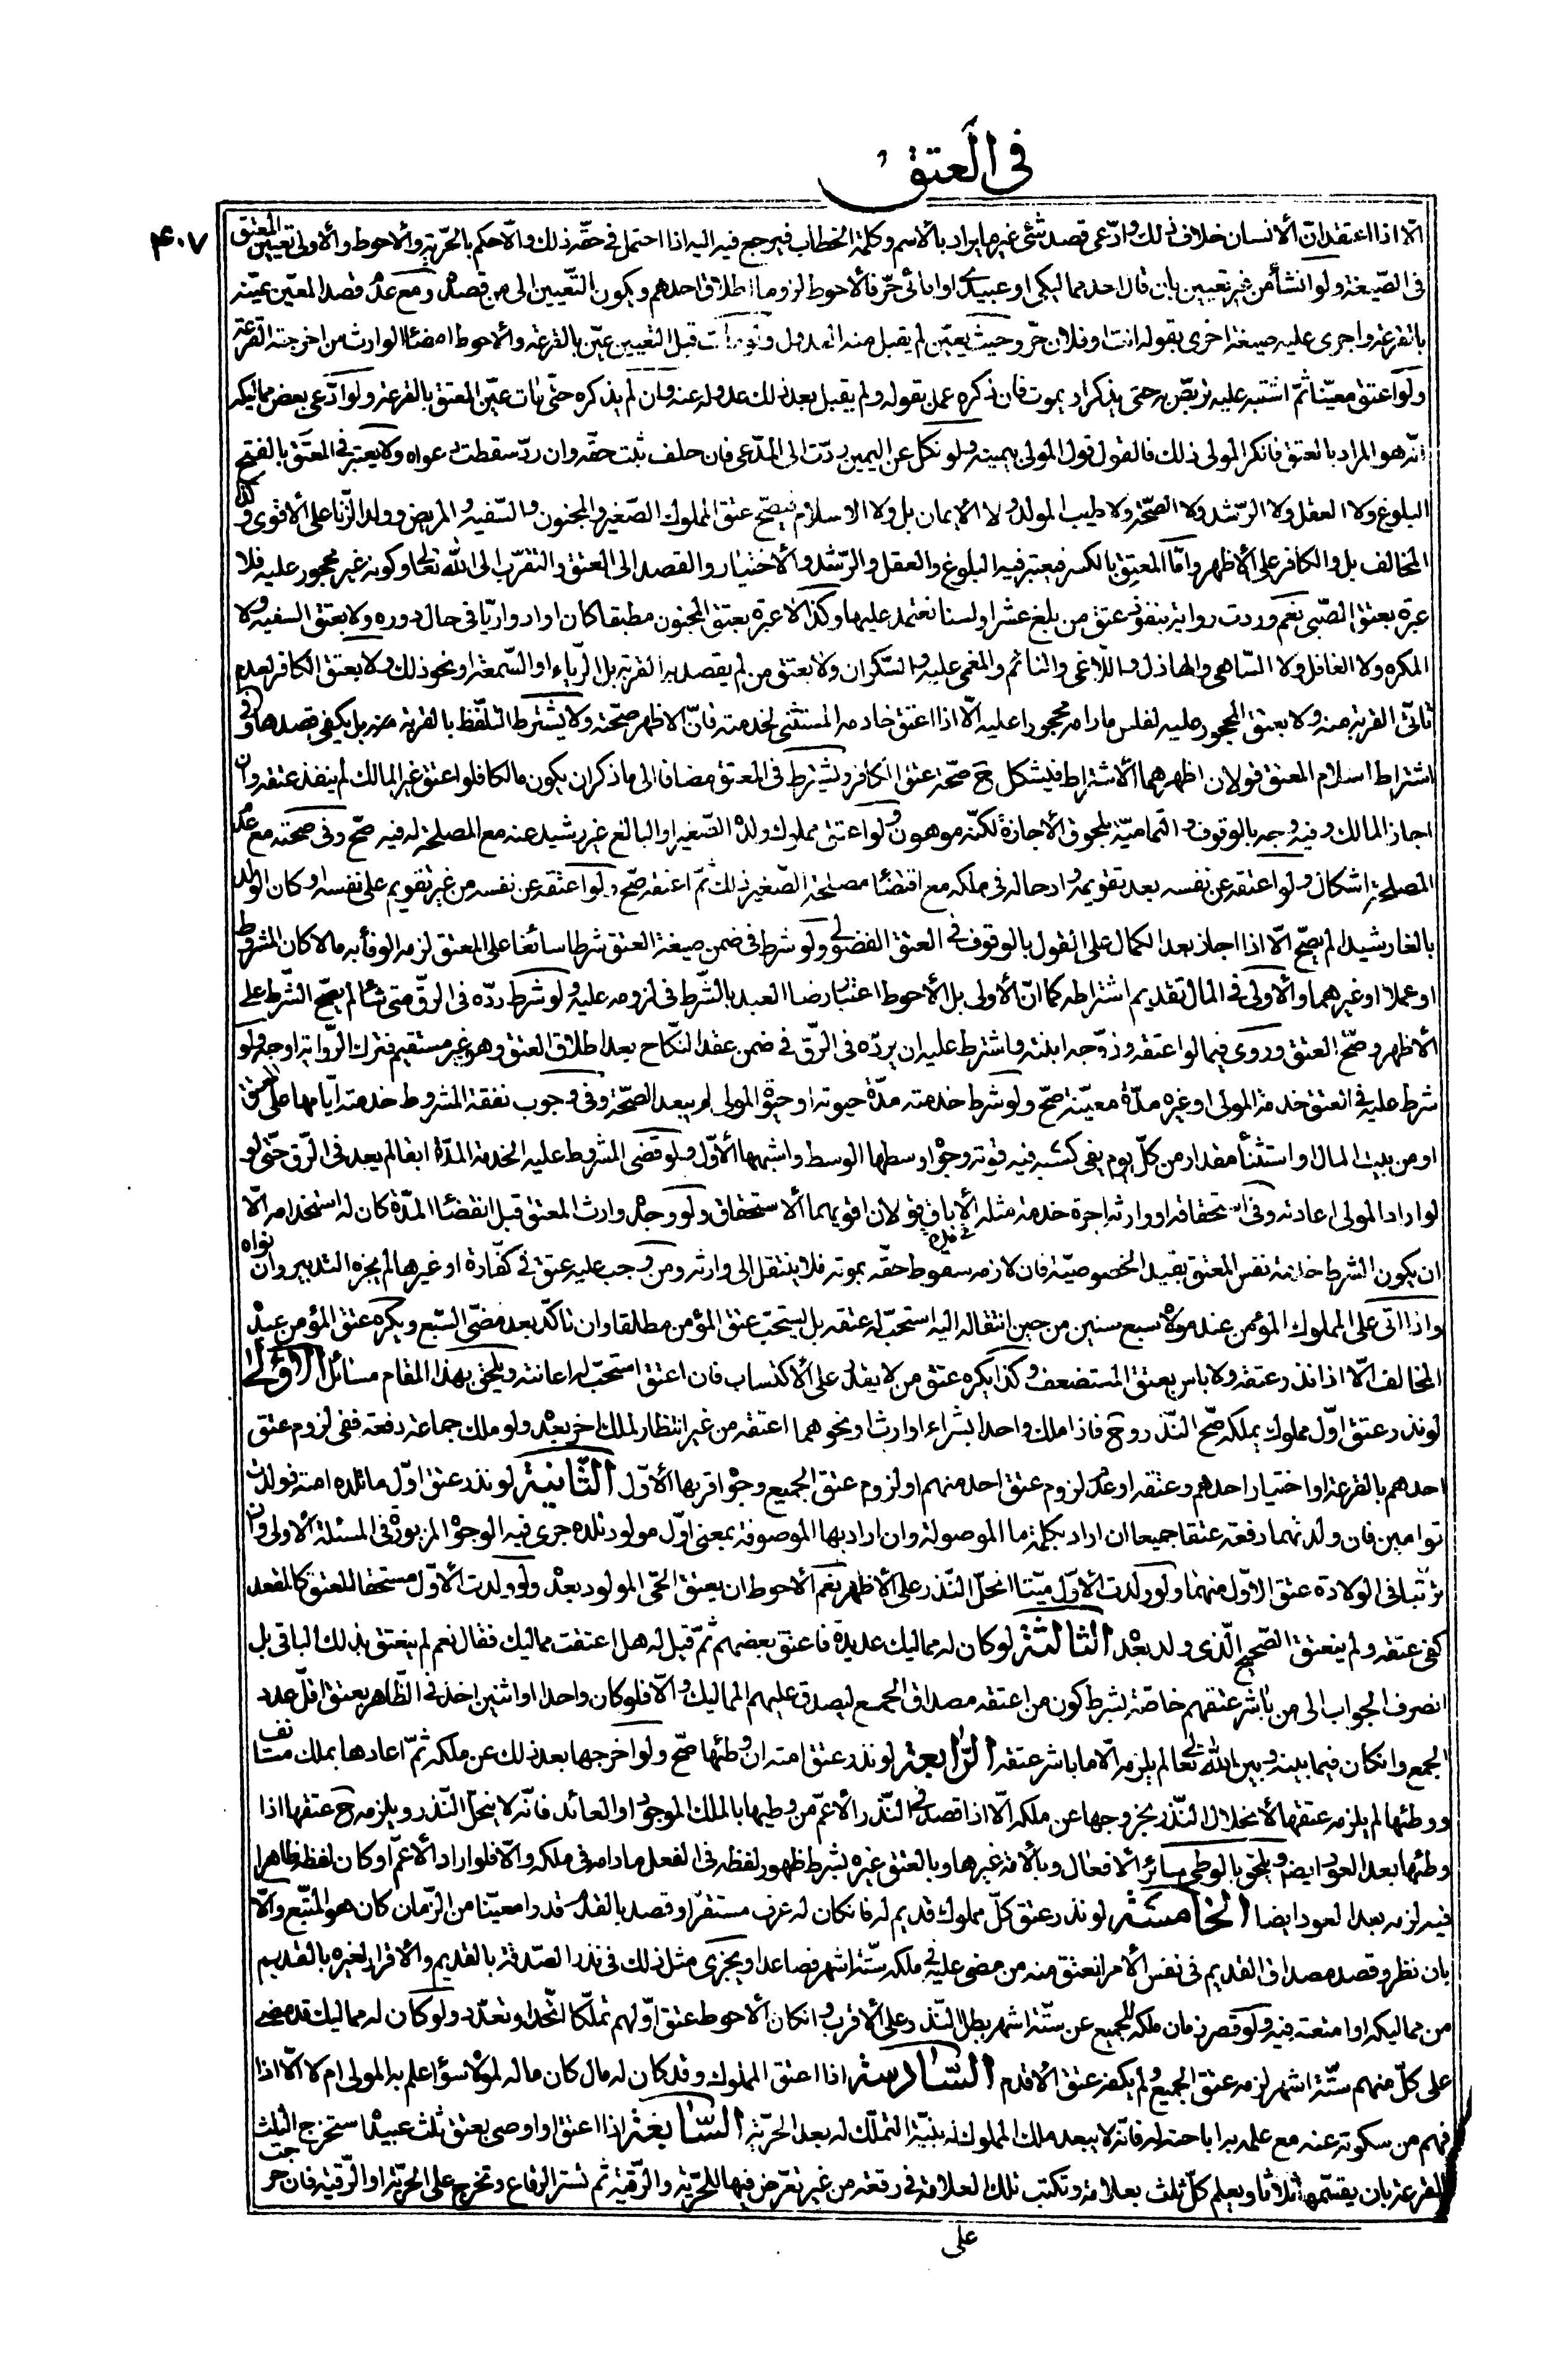 في العتق
۴۰۷
الّا اذا اعتقد انّ الانسان خلاف ذلك وادّعى قصد شئ غيرها يراد بالاسم وكلمة الخطاب فيرجع فيه اليه اذا احتمل في حقّه ذلك والّا حكم بالحرّية والاحوط والاولى تعيين المعتق
في الصّيغة ولو انشأ من غير تعيين بان قال احد مماليكي او عبيدك او ابائي حرّ فالاحوط لزوما اطلاق احدهم ويكون التّعيين الى من قصده ومع عدم قصد المعيّن عيّنه
بالقرعة واجرى عليه صيغة اخرى بقوله انت او فلان حرّ وحيث يعيّن لم يقبل منه العدول ولو مات قبل التعيين عيّن بالقرعة والاحوط امضاء الوارث من اخرجته القرعة
ولو اعتق معيّنا ثمّ اشتبه عليه تربّص به حتى يذكر او يموت فان ذكره عمل بقوله ولم يقبل بعد ذلك عدوله عنه وان لم يذكره حتّى مات عيّن المعتق بالقرعة ولو ادّعى بعض مماليكه
انّه هو المراد بالعتق فانكر المولى ذلك فالقول قول المولى بيمينه ولو نكل عن اليمين ردّت الى المدّعى فان حلف ثبت حقّه وان ردّ سقطت دعواه ولا يعتبر في المعتق بالفتح
البلوغ ولا العقل ولا الرّشد ولا الصحّة ولا طيب المولد ولا الايمان بل ولا الاسلام فيصحّ عتق المملوك الصّغير والمجنون والسّفيه والمريض وولد الزّنا على الاقوى وكذا
المخالف بل والكافر على الاظهر وامّا المعتِق بالكسر فيعتبر فيه البلوغ والعقل والرّشد والاختيار والقصد الى العتق والتقرّب الى الله تعالى وكونه غير محجور عليه فلا
عبرة بعتق الصّبى نعم وردت رواية بنفوذ عتق من بلغ عشرا ولسنا نعتمد عليها وكذا لا عبرة بعتق المجنون مطبقا كان او ادواريّا في حال دوره ولا بعتق السفيه ولا
المكره ولا الغافل ولا السّاهى والهاذل واللّاغى والنائم والمغمى عليه والسّكران ولا بعتق من لم يقصد به القربة بل الرّياء او السّمعة او نحو ذلك ولا بعتق الكافر لعدم
تأتّى القربة منه ولا بعتق المحجور عليه لفلس مادام محجورا عليه الّا اذا اعتق خادمه المستثنى لخدمته فانّ الاظهر صحّته ولا يشترط التلفّظ بالقربة منه بل يكفى قصدها وفى
اشتراط اسلام المعتق قولان اظهرهما الاشتراط فيشكل ح صحّة عتق الكافر ويشترط في المعتق مضافا الى ما ذكر ان يكون مالكا فلو اعتق غير المالك لم ينفذ عتقه وان
اجاز المالك وفيه وجه بالوقوف والتماميّة بلحوق الاجازة لكنّه موهون ولو اعتق مملوك ولده الصّغير او البالغ غير رشيد عنه مع المصلحة له فيه صحّ وفى صحّته مع عدم
المصلحة اشكال ولو اعتقه عن نفسه بعد تقويمه وادخاله في ملكه مع اقتضاء مصلحة الصّغير ذلك ثمّ اعتقه صحّ ولو اعتقه عن نفسه من غير تقويم على نفسه او كان الولد
بالغا رشيدا لم يصحّ الّا اذا اجاز بعد الكمال على القول بالوقوف في العتق الفضولى ولو شرط في ضمن صيغة العتق شرطا سائغا على المعتق لزمه الوفأ به مالا كان المشروط
او عملا او غيرهما والاولى في المال تقديم اشتراطه كما انّ الاولى بل الاحوط اعتبار رضا العبد بالشّرط في لزومه عليه ولو شرط ردّه في الرقّ متى شاء لم يصحّ الشّرط على
الاظهر وصحّ العتق وروى فيما لو اعتقه وزوّجه ابنته واشترط عليه ان يردّه في الرقّ في ضمن عقد النّكاح بعد اطلاق العتق وهو غير مستقيم فترك الرّواية اوجه ولو
شرط عليه في العتق خدمة المولى او غيره مدّة معيّنة صحّ ولو شرط خدمته مدّة حيوته او حيوة المولى لم يبعد الصحّة وفى وجوب نفقة المشروط خدمته ايّامها على المعتق
او من بيت المال او استثناء مقدار من كلّ يوم يفى كسبه فيه قوته وجوه اوسطها الوسط واشبهها الاوّل ولو قضى المشروط عليه الخدمة المدّة ابقا لم يعد في الرّق حتّى لو
لو اراد المولى اعادته وفى استحقاقه او وارثه اجرة خدمة مثله في مدّة الاباق قولان اقويهما الاستحقاق ولو وجده وارث المعتق قبل انقضاء المدّة كان له استخدامه الّا
ان يكون الشرط خدمة نفس المعتق بقيد الخصوصيّة فان لازمه سقوط حقّه بموته فلا ينتقل الى وارثه ومن وجب عليه عتق في كفّارة او غيرها لم يجزه التدبير وان نواه
واذا اتى على المملوك المؤمن عند مولاه سبع سنين من حين انتقاله اليه استحبّ له عتقه بل يستحبّ عتق المؤمن مطلقا وان تاكّد بعد مضىّ السّبع ويكره عتق المؤمن عبده
المخالف الّا اذا نذر عتقه ولا باس بعتق المستضعف وكذا يكره عتق من لا يقدر على الاكتساب فان اعتق استحبّ له اعانته ويلحق بهذا المقام مسائل الاولى
لو نذر عتق اوّل مملوك يملكه صحّ النّذر وح فاذا ملك واحدا بشراء او ارث او نحوهما اعتقه من غير انتظار لملك اخر بعده ولو ملك جماعة دفعة ففى لزوم عتق
احدهم بالقرعة او اختيار احدهم وعتقه او عدم لزوم عتق احد منهم او لزوم عتق الجميع وجوه اقربها الاوّل الثّانية لو نذر عتق اوّل ما تلده امته فولدت
توأمين فان ولدتهما دفعة عتقا جميعا ان اراد بكلمة ما الموصولة وان اراد بها الموصوفة بمعنى اوّل مولود تلده جرى فيه الوجوه المزبورة في المسئلة الاولى وان
ترتّبا في الولادة عتق الاوّل منهما ولو ولدت الاوّل ميّتا انحلّ النّذر على الاظهر نعم الاحوط ان يعتق الحىّ المولود بعده ولو ولدت الاوّل مستحقا للعتق كالمقعد
كفى عتقه ولم ينعتق الصّحيح الّذى ولد بعده الثالثة لو كان له مماليك عديدة فاعتق بعضهم ثمّ قيل له هل اعتقت مماليك فقال نعم لم ينعتق بذلك الباقى بل
انصرف الجواب الى من باشر عتقهم خاصّة بشرط كون من اعتقه مصداق الجمع ليصدق عليهم المماليك والّا فلو كان واحدا او اثنين اخذ في الظّاهر بعتق اقلّ عدد
الجمع وانكان فيما بينه وبين الله تعالى لم يلزمه الّا ما باشر عتقه الرّابعة لو نذر عتق امته ان وطئها صحّ ولو اخرجها بعد ذلك عن ملكه ثمّ اعادها بملك مستأنف
ووطئها لم يلزمه عتقها لانحلال النّذر بخروجها عن ملكه الّا اذا قصد في النّذر الاعمّ من وطيها بالملك الموجود او العائد فانّه لا ينحلّ النّذر ويلزمه ح عتقها اذا
وطئها بعد العود ايضا ويلحق بالوطى سائر الافعال وبالامة غيرها وبالعتق غيره بشرط ظهور لفظه في الفعل مادام في ملكه والّا فلو اراد الاعمّ او كان لفظه ظاهرا
فيه لزمه بعد العود ايضا الخامسة لو نذر عتق كلّ مملوك قديم له فانكان له عرف مستقرّ او قصد بالقديم قدرا معيّنا من الزّمان كان هو المتّبع والّا
بان نظر وقصد مصداق القديم في نفس الامر انعتق منه من مضى عليه في ملكه ستّة اشهر فصاعدا ويجزى مثل ذلك في نذر الصّدقة بالقديم والاقرار لغيره بالقديم
من مماليكه او امتعته وفيه ولو قصر زمان ملكه للجميع عن ستّة اشهر بطل النّذر على الاقرب وانكان الاحوط عتق اوّلهم تملّكا اتّحد او تعدّد ولو كان له مماليك قد مضى
على كلّ منهم ستّة اشهر لزمه عتق الجميع ولم يكفه عتق الاقدم السّادسة اذا اعتق المملوك وقد كان له مال كان ماله لمولاه سواء علم به المولى ام لا الّا اذا
فهم من سكوته عنه مع علمه به اباحته له فانّه لا يبعد ملك المملوك له بنيّة التملّك له بعد الحرّية السّابعة اذا اعتق او اوصى بعتق ثلث عبيده استخرج الثلث
بالقرعة بان يقسّمها اثلاثا ويعلم كلّ ثلث بعلامة وتكتب تلك العلامة في رقعة من غير تعرّض فيها للحرّية والرّقية ثم تستر الرقاع وتخرج على الحرّية او الرّقية فان خرجت
على